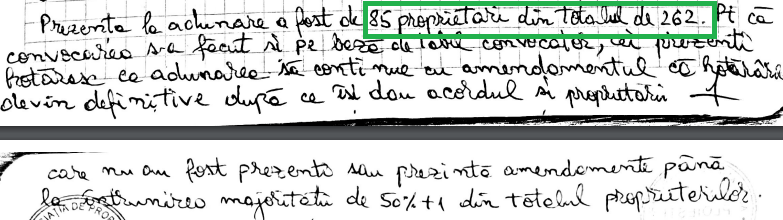 Prezenta la adunare a fost de 85 proprietari din totalul de 262. Pt că
convocarea s-a facut si pe bază de tabel convocator, cei prezenti
hotărăsc ca adunarea să continue cu amendamentul că hotărârile
devin definitive după ce își dau acordul si proprietarii
care nu au fost prezenti sau prezintă amendamente până
la întrunirea majoritatii de 50%+1 din totalul proprietarilor.